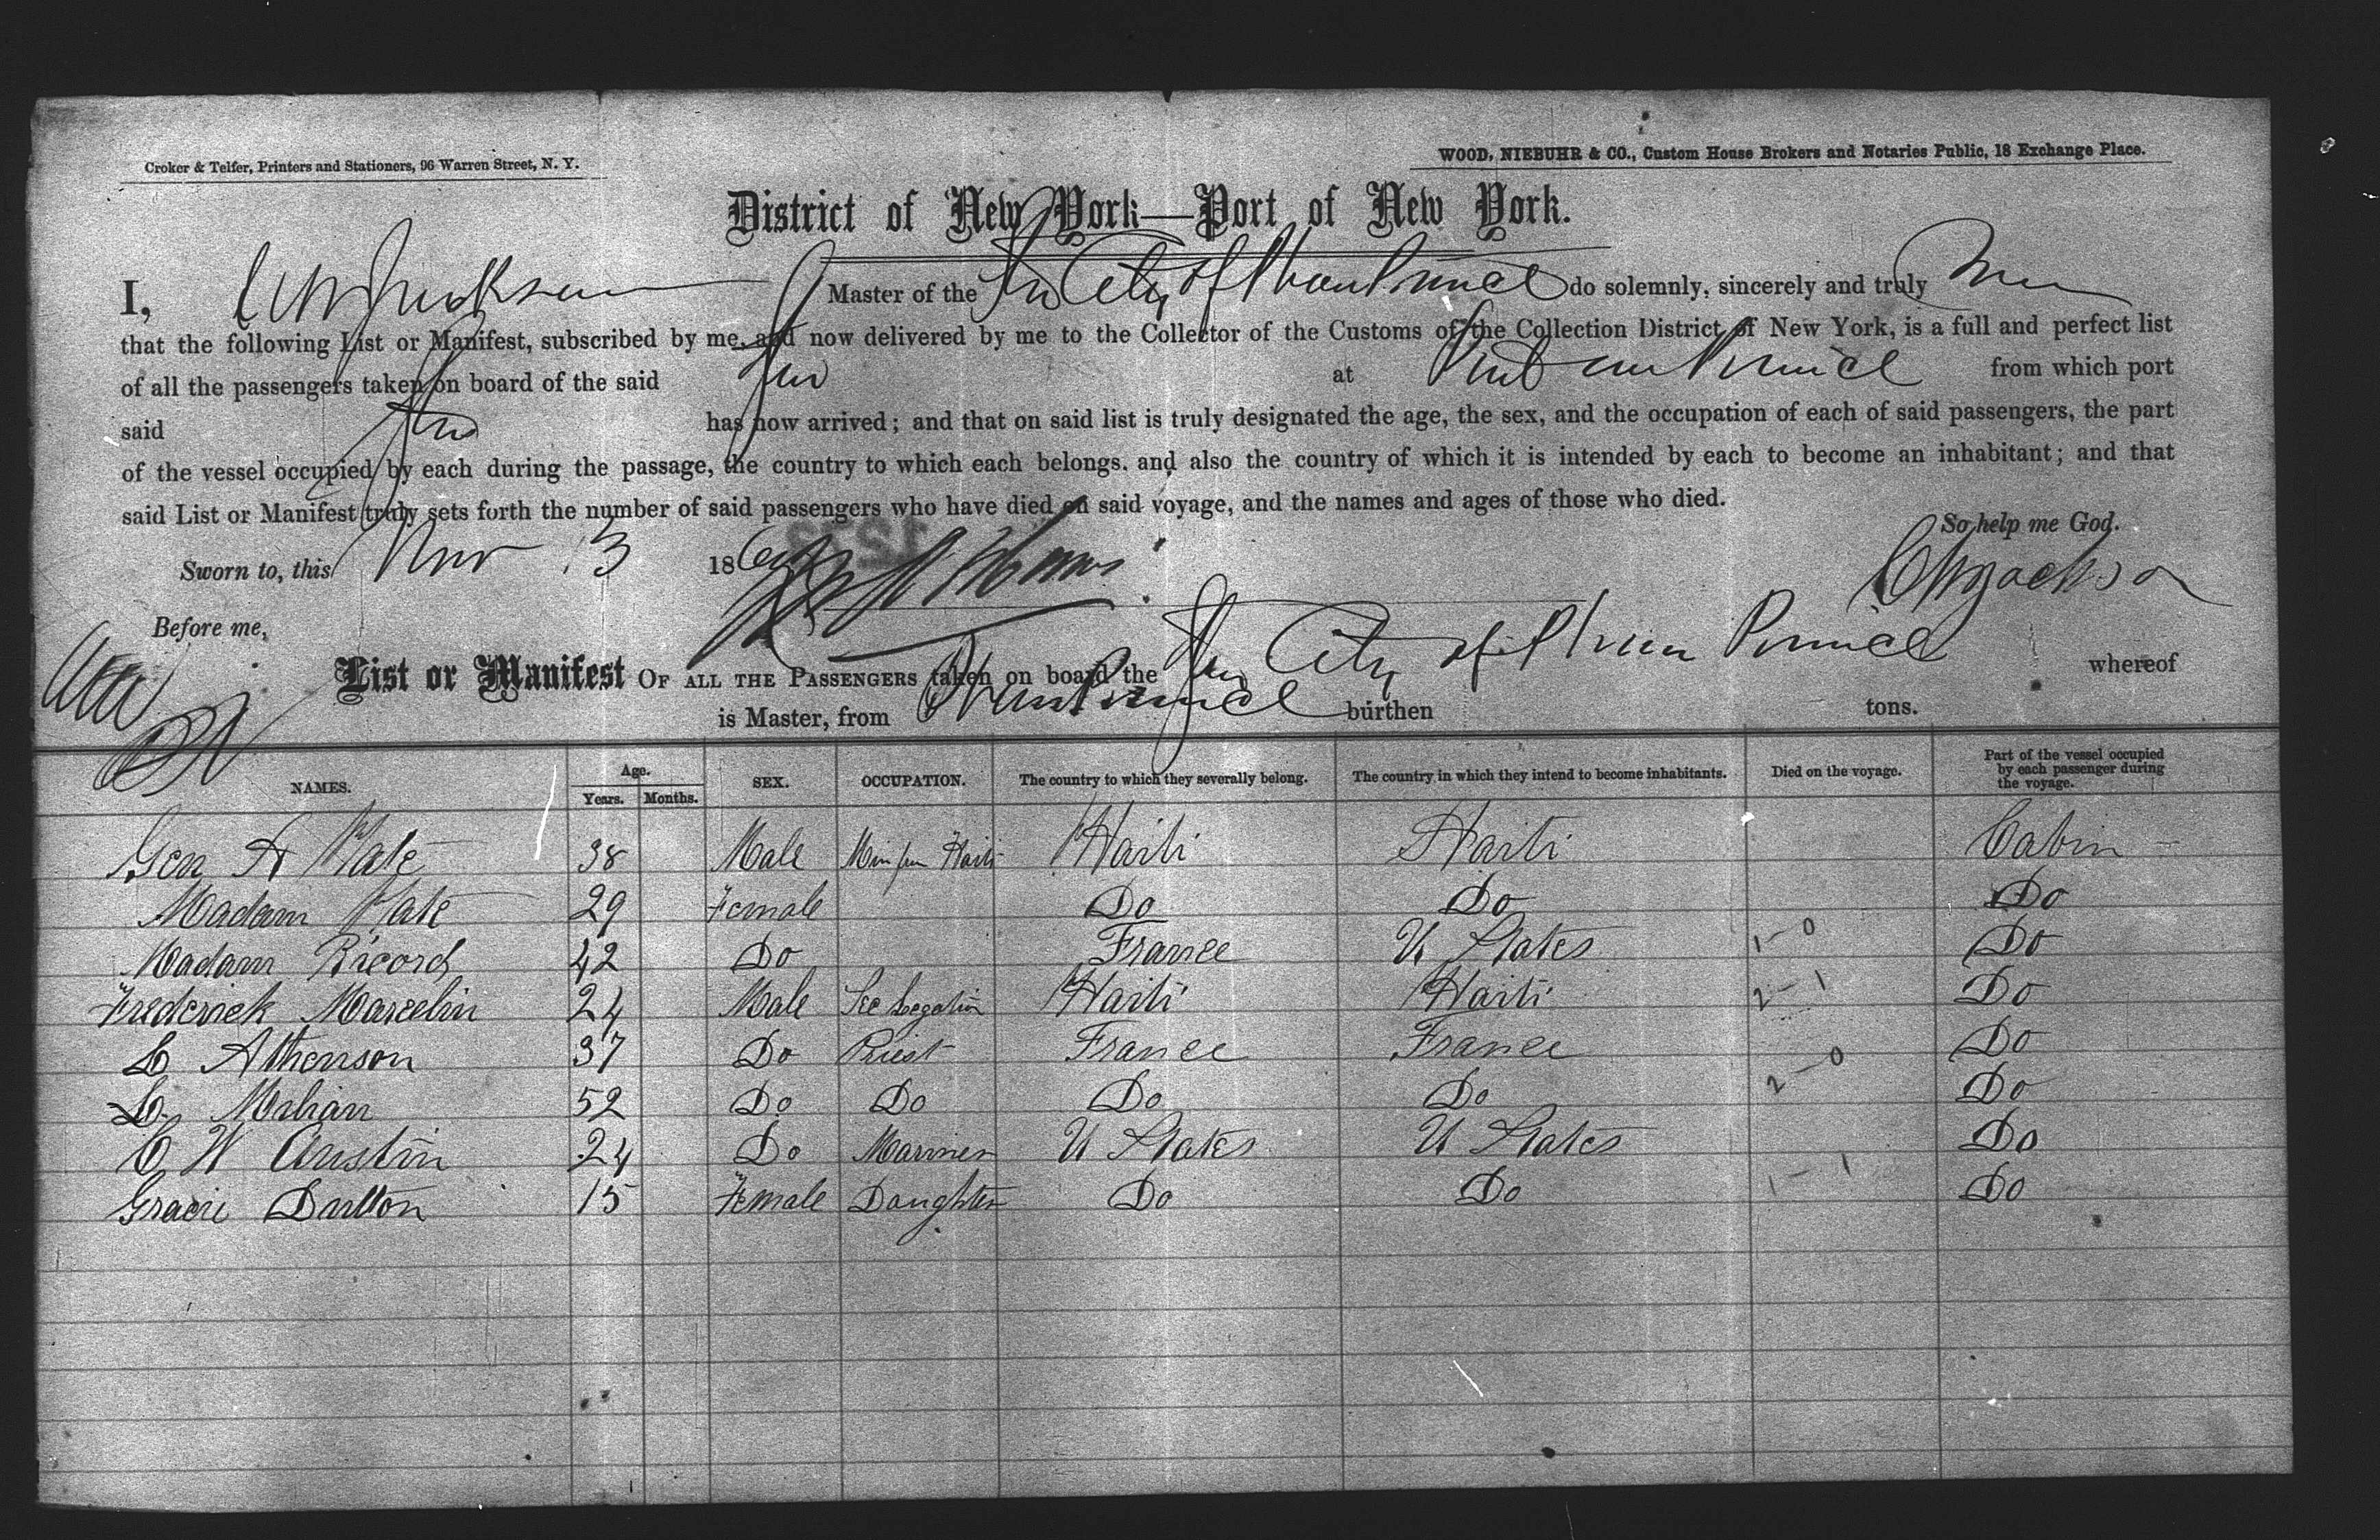 Croker & Telfer, Printers and Stationers, 96 Warren Street, N. Y.
WOOD, NIEBUHR & CO., Custom House Brokers and Notaries Public, 18 Exchange Place.
District of New York—Port of New York.
I, C W Jackson Master of the City of Port au Prince do solemnly, sincerely and truly
that the following List or Manifest, subscribed by me, and now delivered by me to the Collector of the Customs of the Collection District of New York, is a full and perfect list
of all the passengers taken on board of the said at Port au Prince from which port
said has now arrived; and that on said list is truly designated the age, the sex, and the occupation of each of said passengers, the part
of the vessel occupied by each during the passage, the country to which each belongs. and also the country of which it is intended by each to become an inhabitant; and that
said List or Manifest truly sets forth the number of said passengers who have died on said voyage, and the names and ages of those who died.
So help me God.
Sworn to, this Nov 13 186
CWJackson
Before me,
List or Manifest OF ALL THE PASSENGERS taken on board the City of Port au Prince whereof
is Master, from Port au Prince burthen tons.
NAMES. Age. Years. Months. SEX. OCCUPATION. The country to which they severally belong. The country in which they intend to become inhabitants. Died on the voyage. Part of the vessel occupied by each passenger during the voyage.
Gen A 38 Male Min Haiti Haiti Haiti Cabin
Madam 29 Female Do Do Do
Madam Ricord 42 Do France U States 1-0 Do
Frederick Marcelin 24 Male Sec Legation Haiti Haiti 2-1 Do
L Athenson 37 Do Priest France France Do
L 52 Do Do Do Do 2-0 Do
C W Austin 24 Do Mariner U States U States Do
Gracie Dutton 15 Female Daughter Do Do 1-1 Do